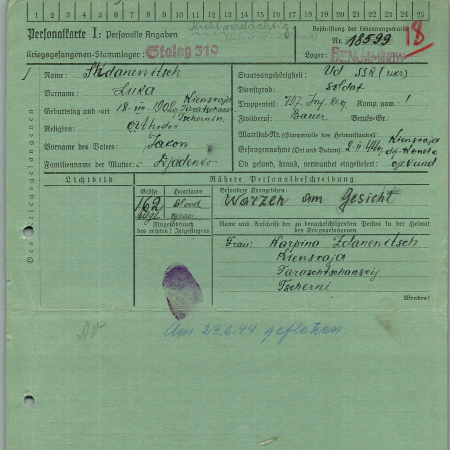 1 2 3 4 5 6 7 8 9 10 11 12 13 14 15 16 17 18 19 20 21 22 23 24 25
Personalkarte I: Personelle Angaben
Beschriftung der Erkennungsmarke
Kriegsgefangenen-Stammlager: Stalag 319
Nr. 18599
8
Lager: BENJAMINOW
Des Kriegsgefangenen
Name: Skdanewitsch
Staatsangehörigkeit: Ud SSR (ukr)
Vorname: Luka
Dienstgrad: Soldat
Geburtstag und -ort 18-VIII-1902
Truppenteil: 797. Inf. Reg Komp. usw.: !
Religion: orthodox
Zivilberuf: Bauer Berufs-Gr.:
Matrikel-Nr. (Stammrolle des Heimatstaates):
Vorname des Vaters:
Gefangennahme (Ort und Datum):
Familienname der Mutter:
Ob gesund, krank, verwundet eingeliefert: gesund
Lichtbild
Nähere Personalbeschreibung
Größe Haarfarbe
Besondere Kennzeichen:
162 blond
Warzen am Gesicht
Fingerabdruck
des rechten Zeigefingers
Name und Anschrift der zu benachrichtigenden Person in der Heimat
des Kriegsgefangenen
Frau: Karpina Zdanewitsch
Kiewskaja
Taraschtschanskij
Tscherni
Wenden!
Am 23.6.44 geflohen.